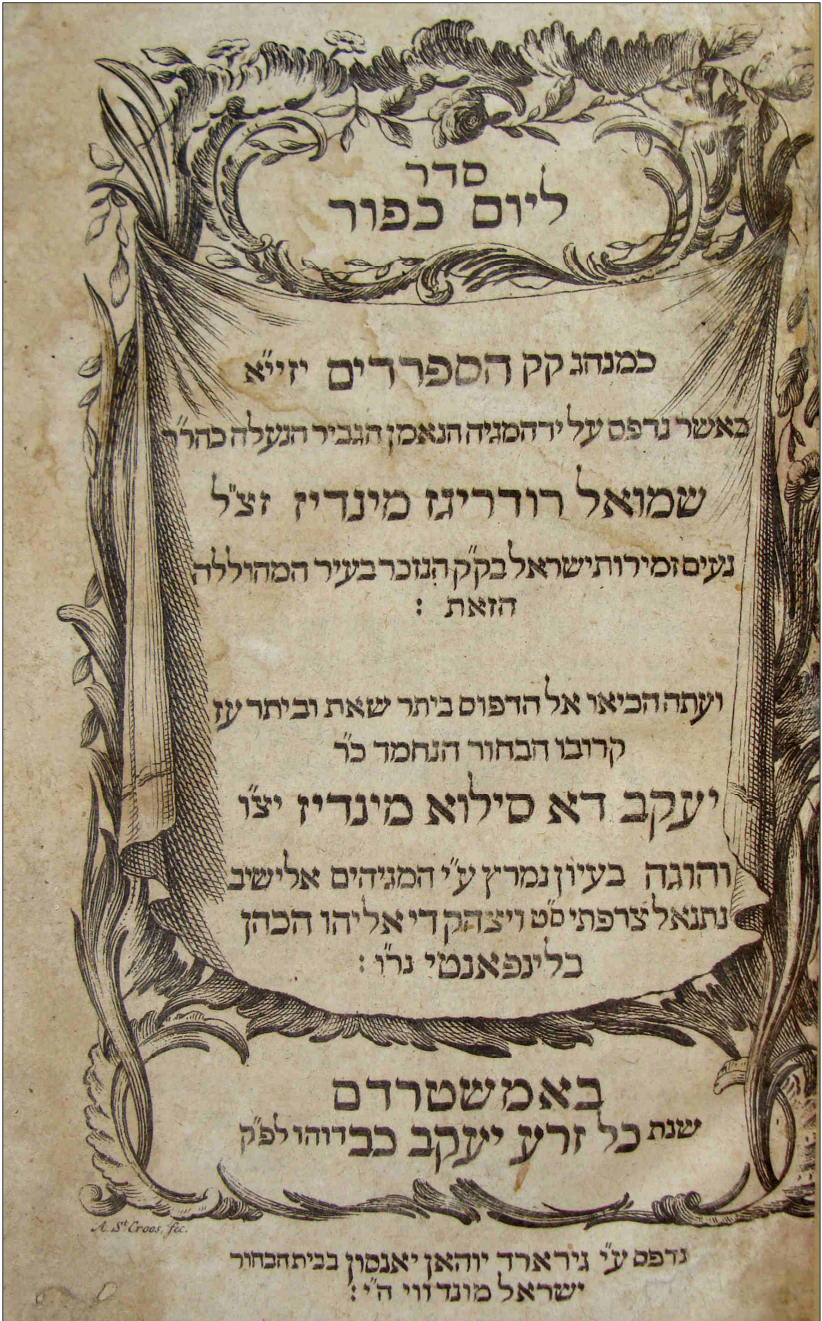 סדר
ליום כפור
כמנהג קק הספרדים יזייא
כאשר נדפס על יד המגיה הנאמן הגביר הנעלה כהר״ר
שמואל רודריגז מינדיז זצ״ל
נעים זמירות ישראל בק״ק הנזכר בעיר המהוללה
הזאת :
ועתה הביאו אל הדפוס ביתר שאת וביתר עז
קרובו הבחור הנחמד כ״ר
יעקב דא סילוא מינדיז יצ״ו
והוגה בעיון נמרץ ע״י המגיהים אלישיב
נתנאל צרפתי ס״ט ויצחק די אליהו הכהן
בלינפאנטי נר״ו :
באמשטרדם
שנת כל זרע יעקב כבדוהו לפ״ק
A. St Croos, fec.
נדפס ע״י גירארד יוהאן יאנסון בבית הבחור
ישראל מונדווי ה״י :